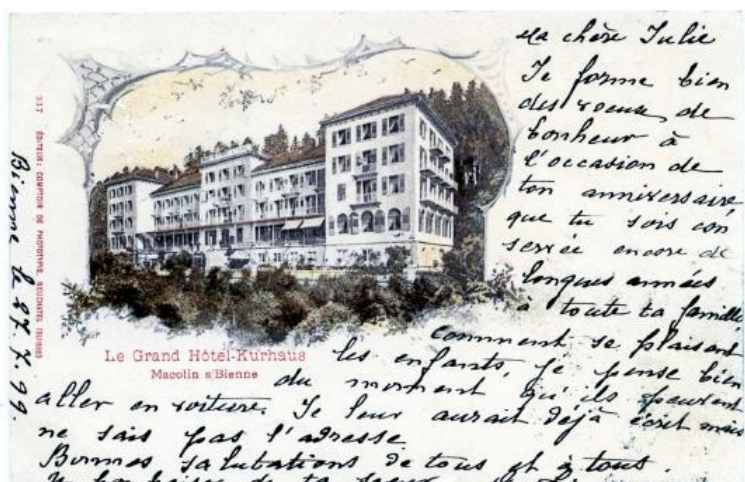 Ma chère Julie
Je forme bien
des voeux de
bonheur à
l'occasion de
ton anniversaire
que tu sois con
servée encore de
longues années
à toute ta famille
comment se plaisent
les enfants, je pense bien
du moment qu'ils peuvent
aller en voiture. Je leur aurait déjà écrit mais
ne sais pas l'adresse
Bonnes salutations de tous et à tous.
Un bon baiser de ta soeur
Le Grand Hôtel-Kurhaus
Macolin s/Bienne
317 ÉDITEUR: COMPTOIR DE PHOTOTYPIE, NEUCHATEL (SUISSE)
Bienne le 27.7.99.